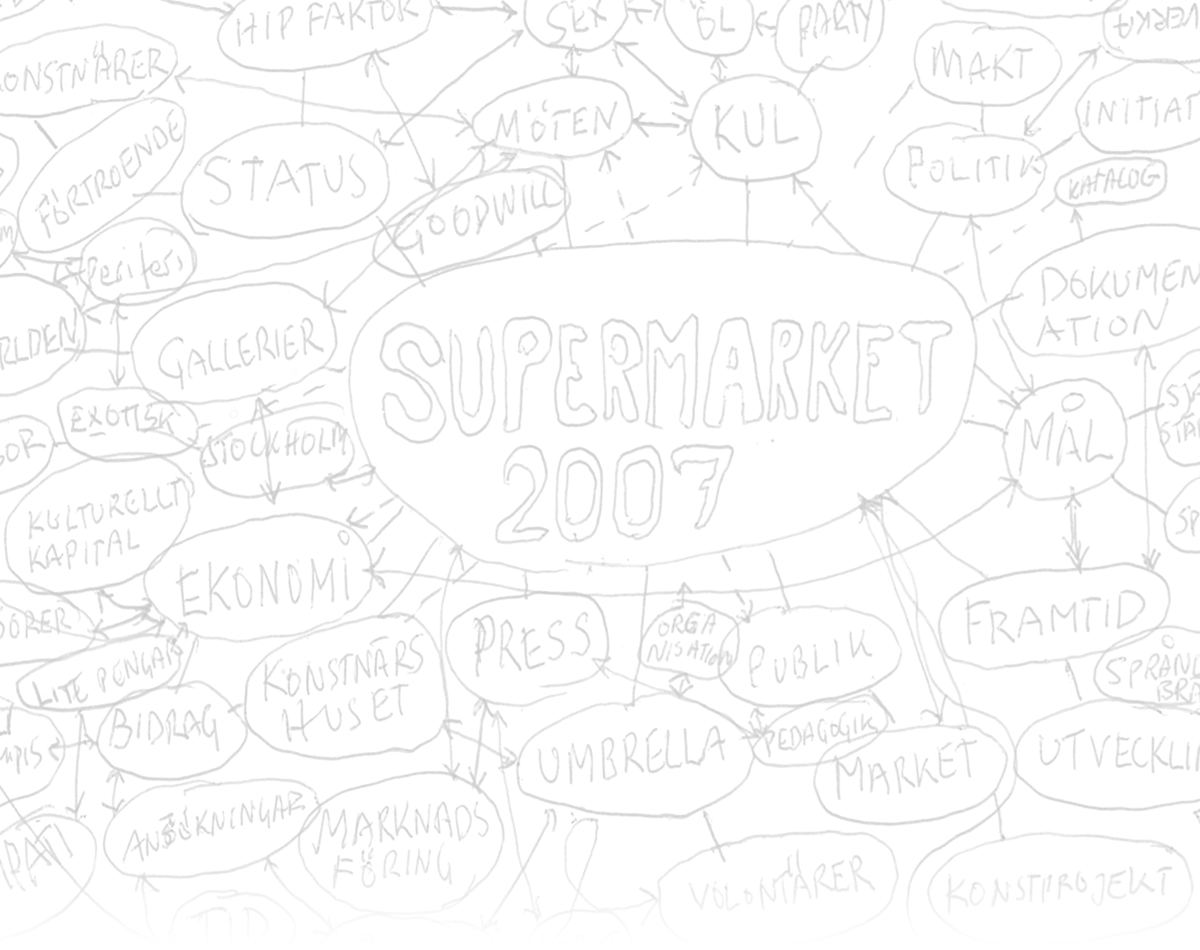 HIP FAKTOR
SEX
ÖL
PARTY
MAKT
KONSTNÄRER
MÖTEN
KUL
INITIAT
FÖRTROENDE
STATUS
POLITIK
KATALOG
GOODWILL
Periferi
DOKUMEN
ATION
RLDEN
GALLERIER
SUPERMARKET
2007
EXOTISK
STOCKHOLM
MÅL
KULTURELLT
KAPITAL
EKONOMI
FRAMTID
PRESS
ORGA
NISATION
PUBLIK
LITE PENGAR
KONSTNÄRS
HUSET
SPRÅNG
BR
BIDRAG
UMBRELLA
PEDAGOGIK
MARKET
UTVECKLI
ANSÖKNINGAR
MARKNADS
FÖRING
VOLONTÄRER
KONSTPROJEKT
TID